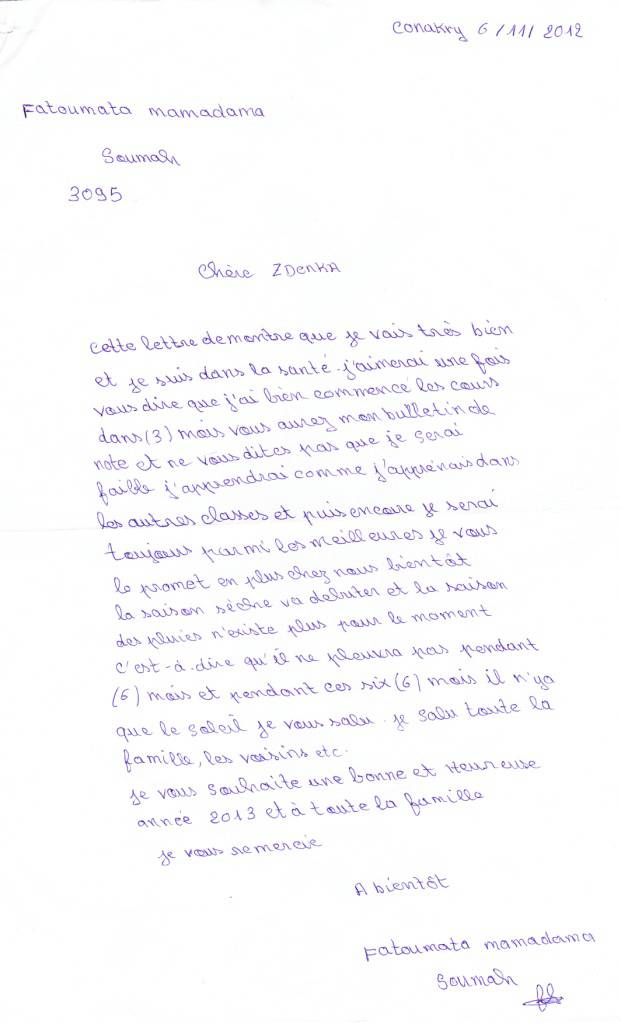 Conakry 6/11/2012
Fatoumata mamadama
Soumah
3095
Chère ZDENKA
cette lettre demontre que je vais très bien
et je suis dans la santé. j'aimerai une fois
vous dire que j'ai bien commencé les cours
dans (3) mois vous aurez mon bulletin de
note et ne vous dites pas que je serai
faible j'apprendrai comme j'apprenais dans
les autres classes et puis encore je serai
toujours parmi les meilleures je vous
le promet en plus chez nous bientôt
la saison sèche va debuter et la saison
des pluies n'existe plus pour le moment
c'est-à-dire qu'il ne pleuvra pas pendant
(6) mois et pendant ces six (6) mois il n'ya
que le soleil je vous salu. je salu toute la
famille, les voisins etc.
je vous souhaite une bonne et Heureuse
année 2013 et à toute la famille
je vous remercie
A bientôt
Fatoumata mamadama
Soumah